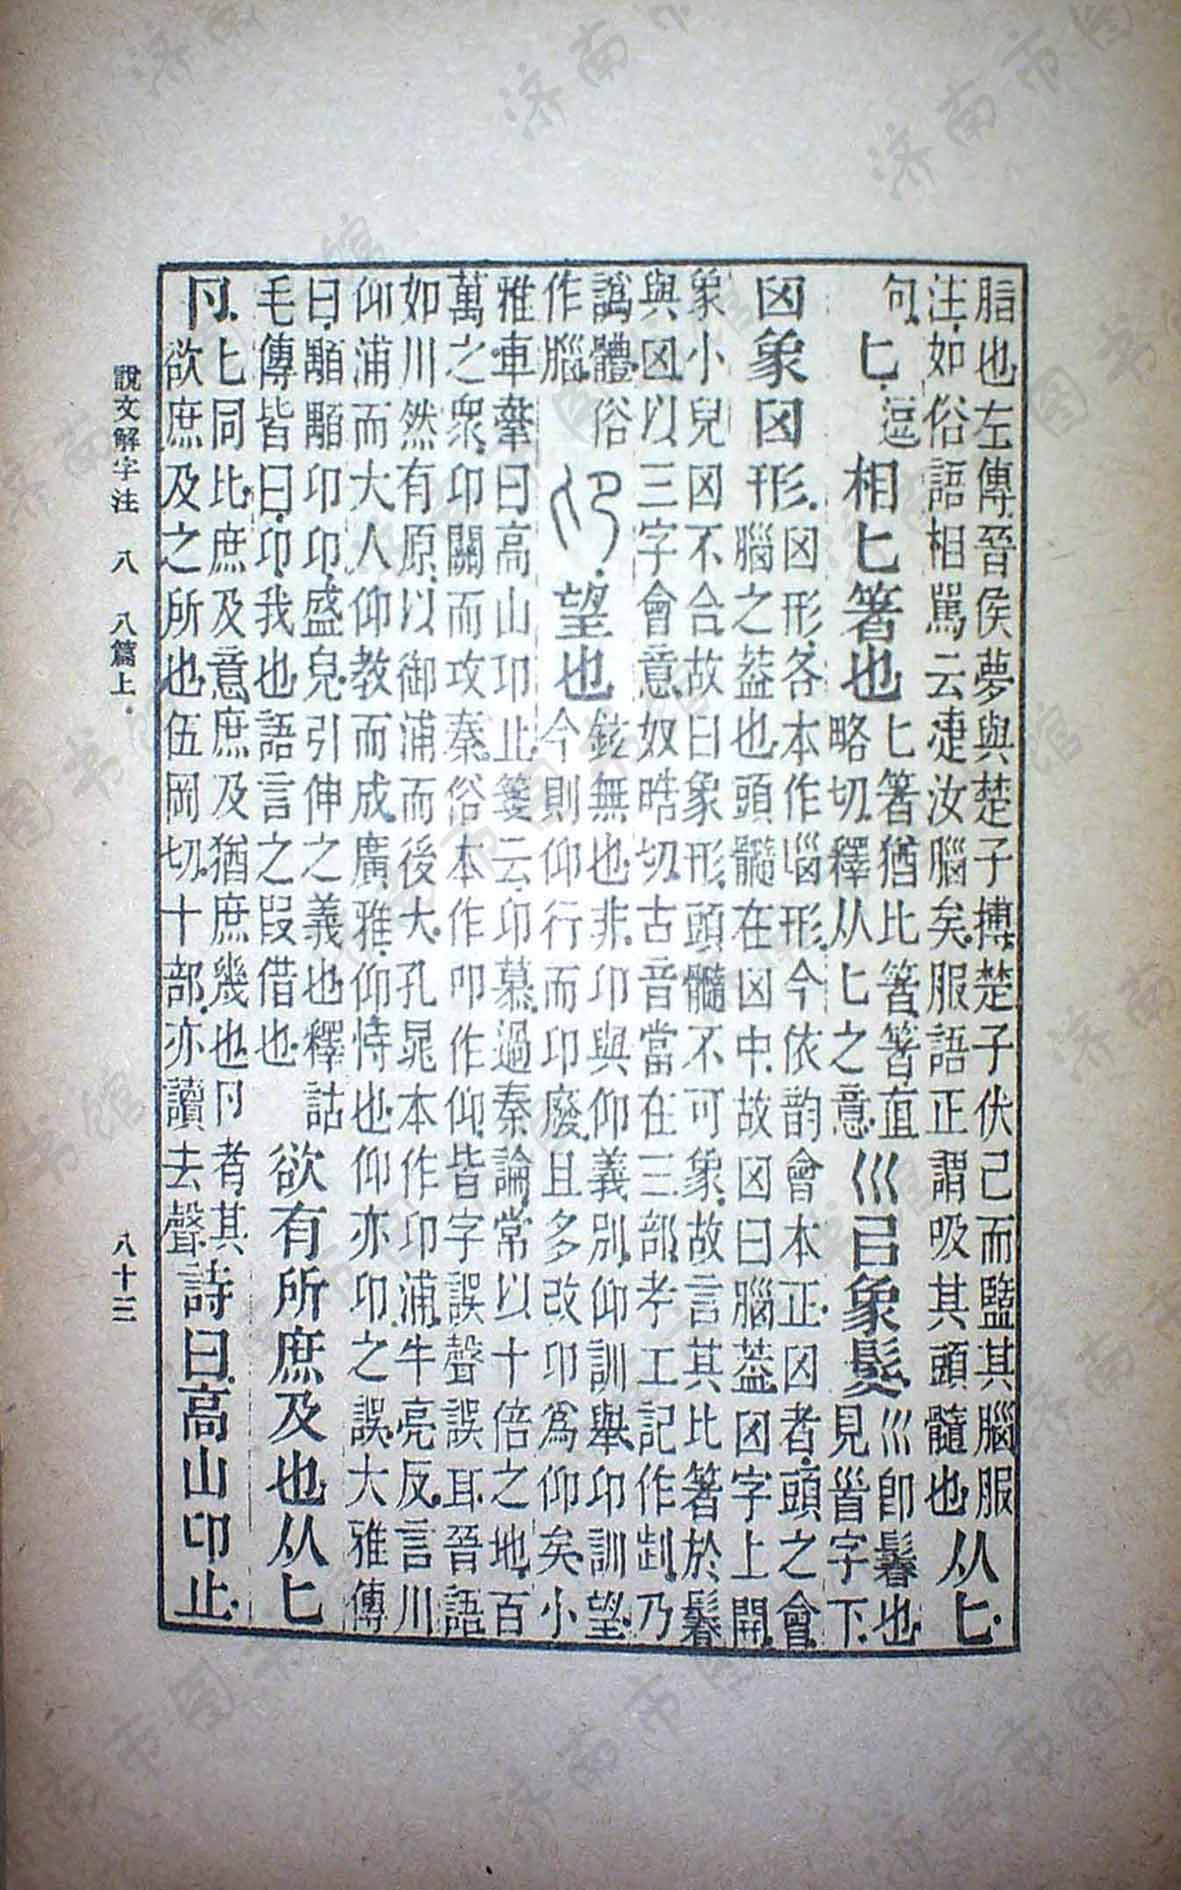 脂也左傳晉侯夢與楚子搏楚子伏己而盬其腦服
注如俗語相駡云淒汝腦矣服語正謂吸其頭髓也
从匕.
句.
匕.逗
相匕箸也
匕箸猶比箸箸直
略切.釋从匕之意.
巛㠯象髮.
巛卽鬊也.
見𥄕字下.
囟象囟形.
囟形.各本作𡿺形.今依韵會本正.囟者.頭之會.
腦之蓋也.頭髓在囟中.故囟曰腦蓋.囟字上開.
象小兒囟不合.故曰象形.頭髓不可象.故言其比箸於鬊
與囟.以三字會意.奴晧切.古音當在三部.考工記作𠜶.乃
譌體.俗
作腦.
望也
鉉無也.非.卬與仰義別.仰訓舉.卬訓望.
今則仰行而卬廢.且多改卬爲仰矣.小
雅.車舝曰.高山卬止.箋云.卬慕.過秦論.常以十倍之地.百
萬之衆.卬關而攻秦.俗本作叩作仰.皆字誤聲誤耳.晉語
如川然有原.以御浦而後大.孔晁本作卬浦.牛亮反.言川
仰浦而大.人仰教而成.廣雅.仰.恃也.仰亦卬之誤.大雅傳
曰.顒顒卬卬.盛皃.引伸之義也.釋詁
毛傳皆曰.卬.我也.語言之叚借也.
欲有所庶及也.从匕
卪.
匕同比.庶及意.庶及猶庶幾也.卪者.其
欲庶及之所也.伍岡切.十部.亦讀去聲.
詩曰.高山卬止.
說文解字注 八 八篇上. 八十三